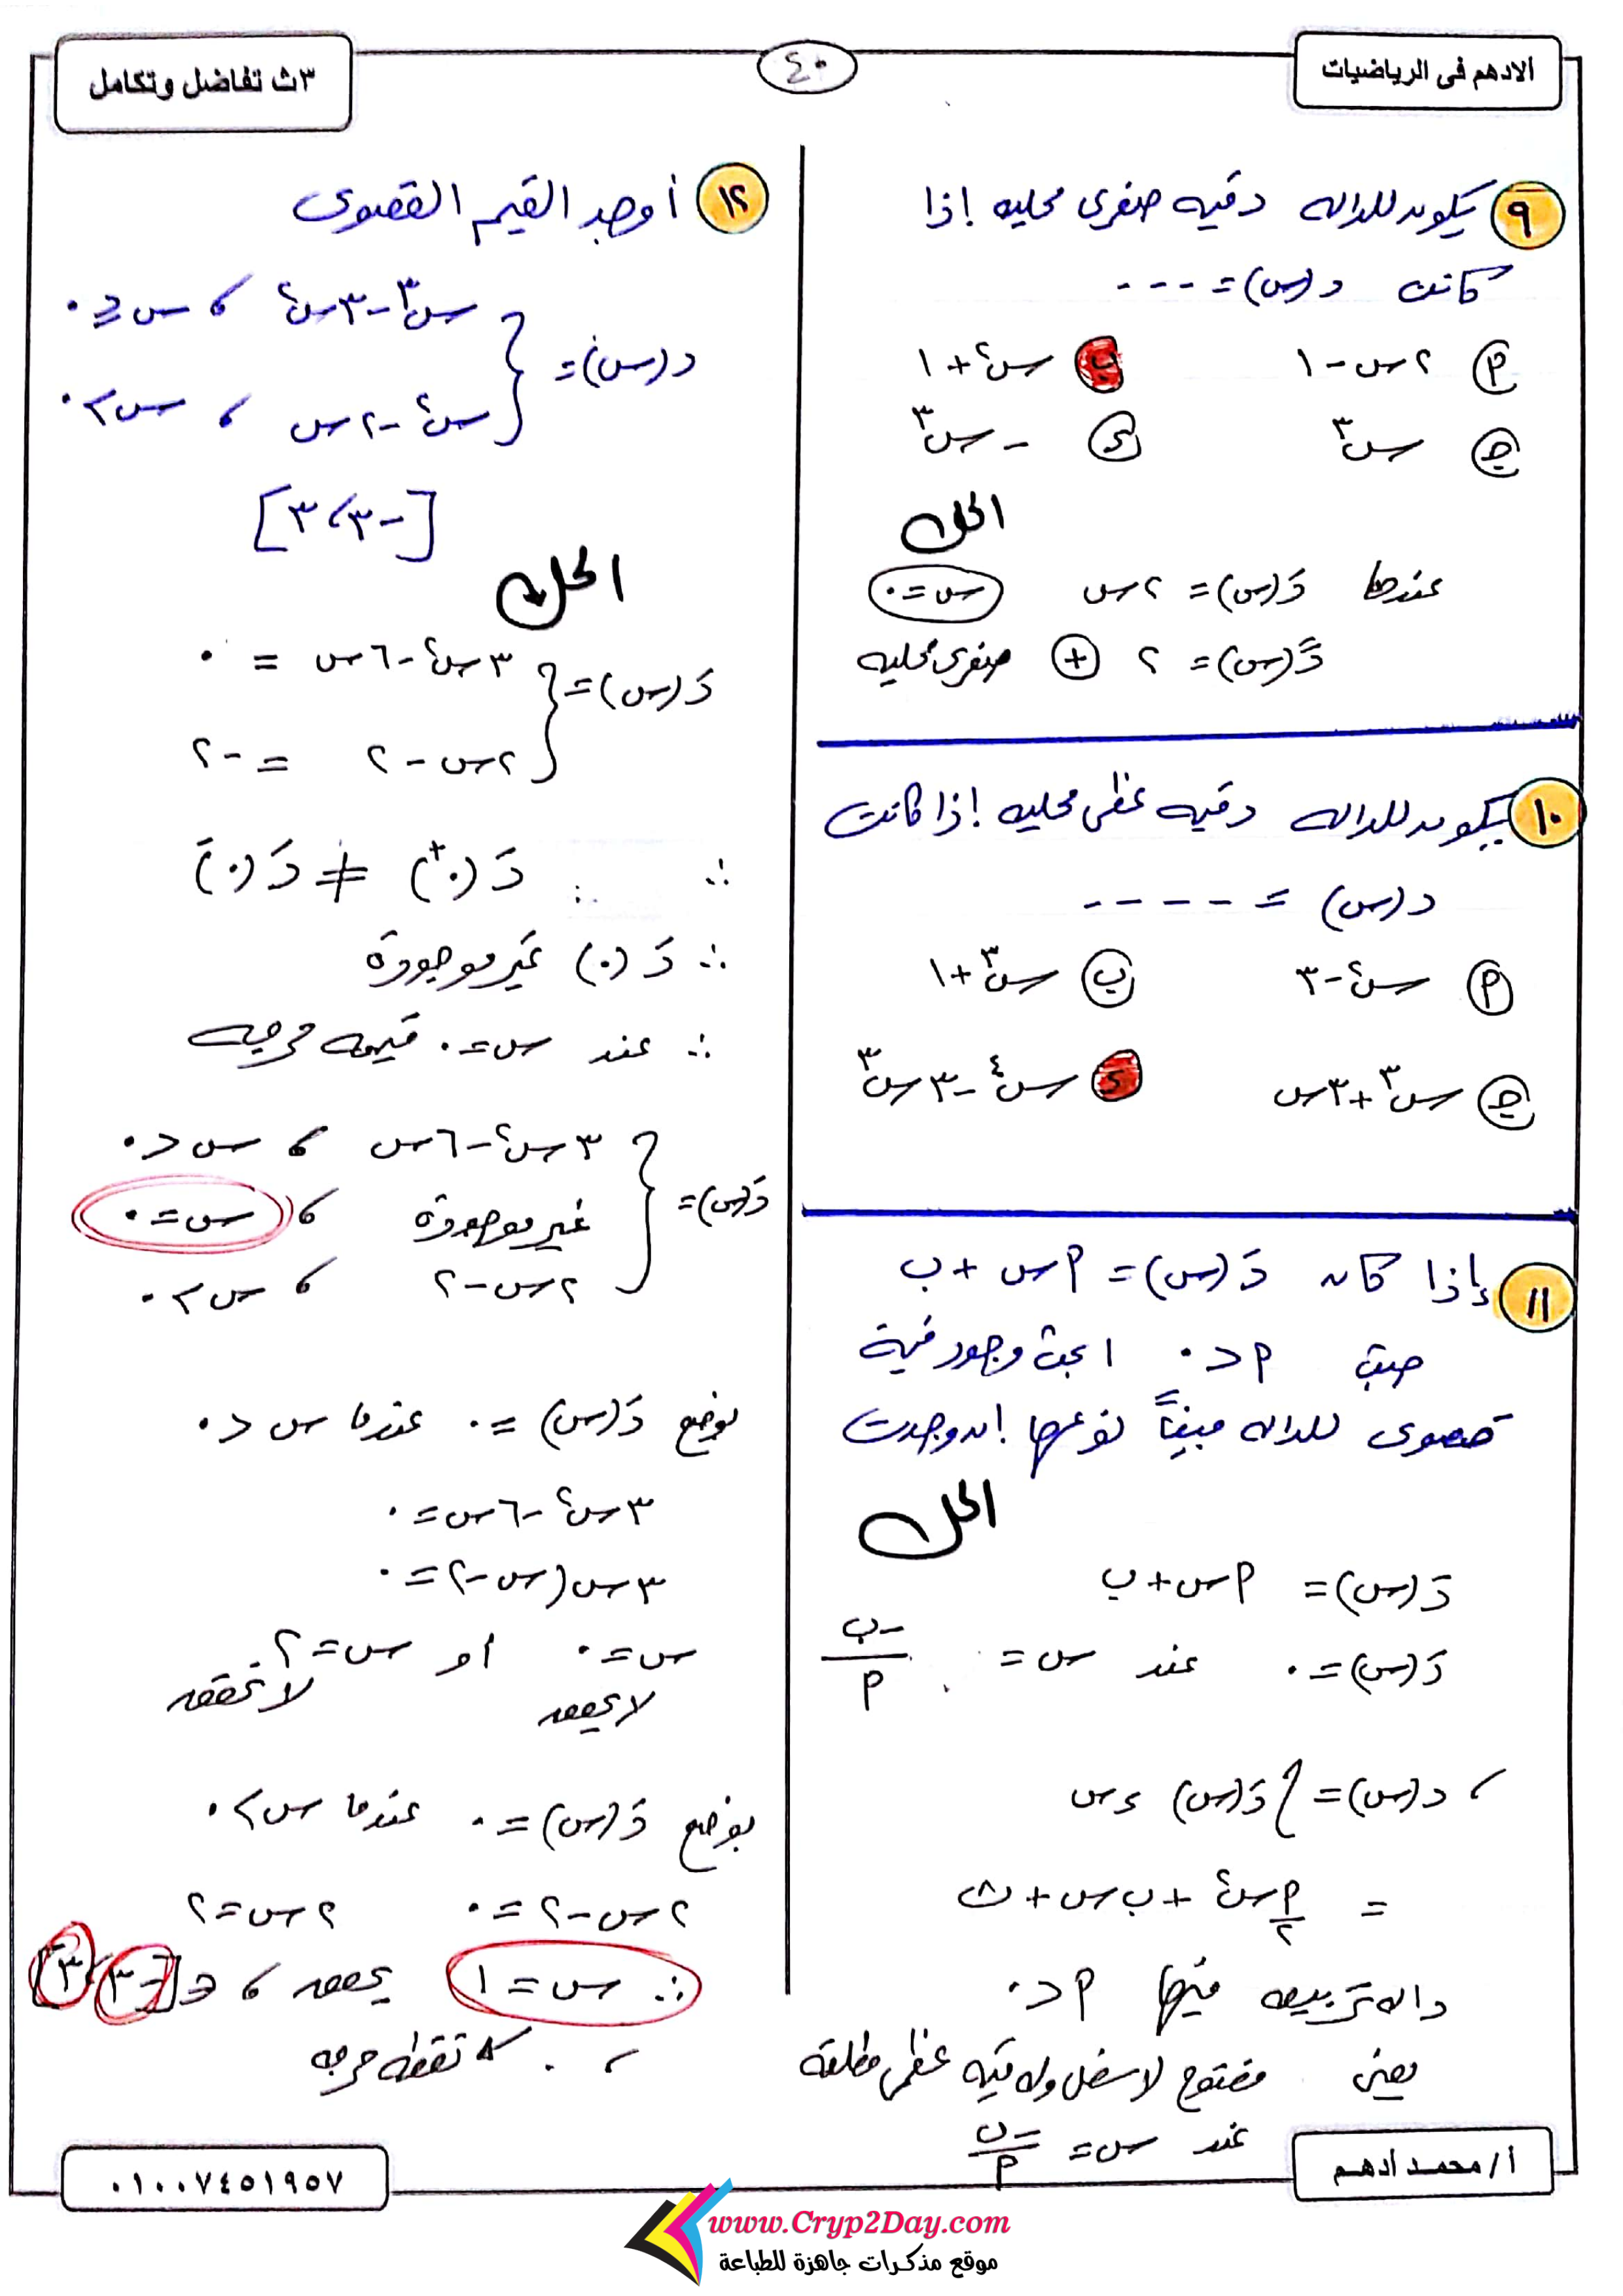 الادهم فى الرياضيات
٤٠
٣ث تفاضل وتكامل
٩ يكون للداله د قيه صغرى محليه إذا
كانت د(س) = - - -
P ٢س - ١
ب س٢ + ١
ج س٣
د - س٣
الحل
عندها دَ(س) = ٢س س = ٠
دً(س) = ٢ + صغرى محليه
١٠ يكون للداله د قيه عظمى محليه إذا كانت
د(س) = - - - -
P س٢ - ٣
ب س٣ + ١
ج س٣ + ٣س
د س٤ - ٣س٣
١١ إذا كان دَ(س) = Pس + ب
حيث P < ٠ ابحث وجود قيمة
قصوى للداله مبيناً نوعها إن وجدت
الحل
دَ(س) = Pس + ب
دَ(س) = ٠ عند س = -ب/P
، د(س) = ∫ دَ(س) ءس
= P/٢ س٢ + ب س + ث
داله تربيعيه فيها P < ٠
يعنى مفتوح لاسفل وله قيه عظمى مطلقه
عند س = -ب/P
١٢ أوجد القيم القصوى
د(س) = { س٣ - ٣س٢ ، س ≤ ٠
س٢ - ٢س ، س > ٠
[-٣، ٣]
الحل
دَ(س) = { ٣س٢ - ٦س = ٠
٢س - ٢ = -٢
∴ دَ(٠+) ≠ دَ(٠-)
∴ دَ(٠) غير موجودة
∴ عند س = ٠ قيمه حرجه
دَ(س) = { ٣س٢ - ٦س ، س < ٠
غير موجودة ، س = ٠
٢س - ٢ ، س > ٠
بوضع دَ(س) = ٠ عندما س < ٠
٣س٢ - ٦س = ٠
٣س(س - ٢) = ٠
س = ٠ او س = ٢
لا يحقق لا تحقق
بوضع دَ(س) = ٠ عندما س > ٠
٢س - ٢ = ٠ ٢س = ٢
∴ س = ١ يحقق ، ∈ [-٣، ٣]
، ٠ نقطه حرجه
أ/محمد أدهم
٠١٠٠٧٤٥١٩٥٧
www.Cryp2Day.com
موقع مذكرات جاهزة للطباعة